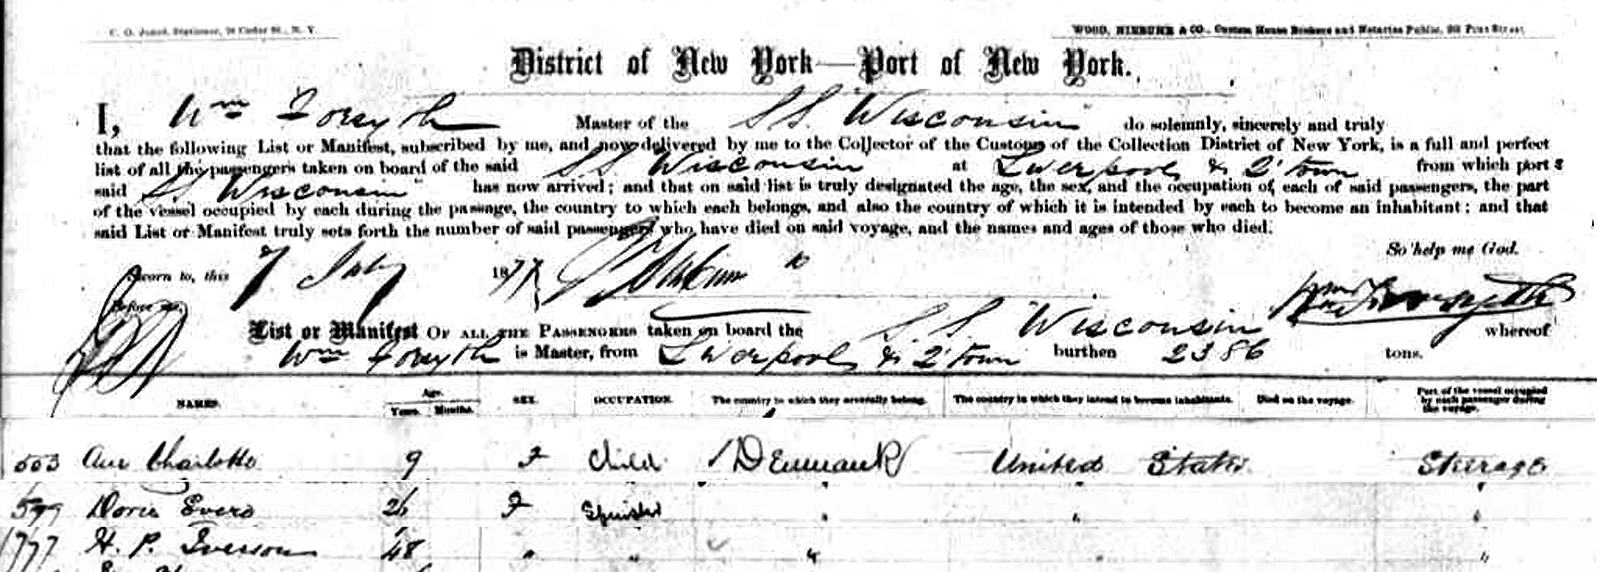 C. O. Jones, Stationer, 76 Cedar St., N. Y.
WOOD, NIEBUHR & CO., Custom House Brokers and Notaries Public, Pine Street
District of New York—Port of New York.
I, Wm Forsyth Master of the S.S. "Wisconsin" do solemnly, sincerely and truly
that the following List or Manifest, subscribed by me, and now delivered by me to the Collector of the Customs of the Collection District of New York, is a full and perfect
list of all the passengers taken on board of the said S.S. Wisconsin at Liverpool & Q'town from which port
said S. Wisconsin" has now arrived; and that on said list is truly designated the age, the sex, and the occupation of each of said passengers, the part
of the vessel occupied by each during the passage, the country to which each belongs, and also the country of which it is intended by each to become an inhabitant; and that
said List or Manifest truly sets forth the number of said passengers who have died on said voyage, and the names and ages of those who died.
So help me God.
Sworn to, this 7 July 1877
Before me,
Wm Forsyth
List or Manifest OF ALL THE PASSENGERS taken on board the S.S. Wisconsin whereof
Wm Forsyth is Master, from Liverpool & Q'town burthen 2386 tons.
NAMES. Age. Years. Months. SEX. OCCUPATION. The country to which they severally belong. The country in which they intend to become inhabitants. Died on the voyage. Part of the vessel occupied by each passenger during the voyage.
503 Ane Charlotte 9 F Child Denmark United States Steerage
599 Doris Evers 26 F Spinster " " "
777 H. P. Iverson 48 " " " " "